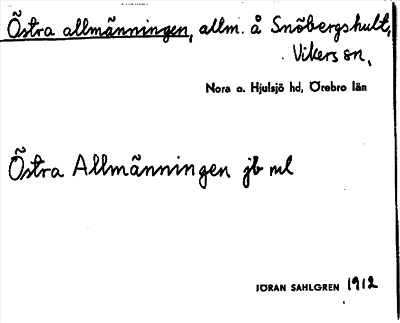 Östra allmänningen, allm. å Snöbergshult,
Vikers sn,
Nora o. Hjulsjö hd, Örebro län
Östra Allmänningen jb ml
JÖRAN SAHLGREN 1912